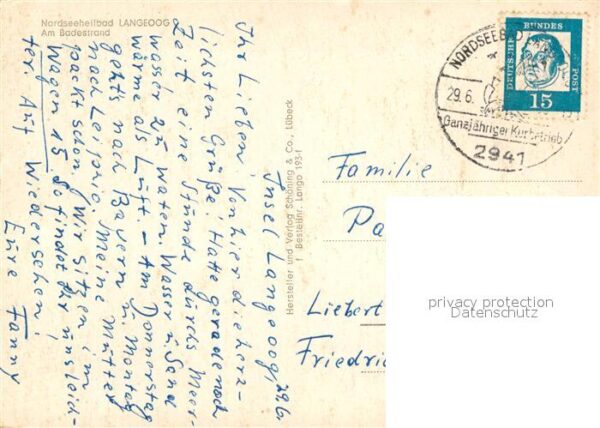 Nordseeheilbad LANGEOOG
Am Badestrand
Insel Langeoog, 29.6.
Ihr Lieben! Von hier die herz-
lichsten Grüße! Hatte gerade noch
Zeit eine Stunde durchs Meer-
wasser zu waten. Wasser u. Sand
wärme als Luft - Am Donnerstag
gehts nach Bayern u. Montag
nach Leipzig. Meine Mutter
packt schon. Wir sitzen im
Wagen 15. So findet ihr uns leich-
ter. Auf Wiedersehen!
Eure Fanny
Hersteller und Verlag Schöning & Co., Lübeck
Bestellnr. Lango 193-f
NORDSEEBAD
29.6.
Ganzjähriger Kurbetrieb!
2941
DEUTSCHE
BUNDES
POST
15
Familie
Pa
Liebert
Friedri
privacy protection
Datenschutz